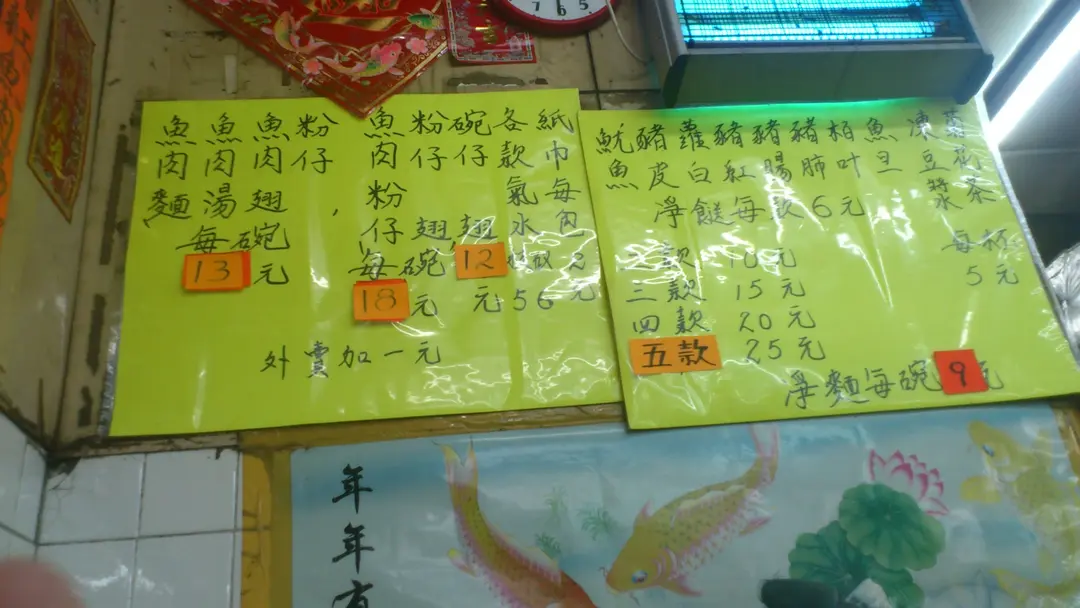 魚肉麵
魚肉湯
魚肉翅
粉仔
每碗
13元
魚肉粉仔
粉仔翅
每碗
18元
碗仔翅
12元
各款氣水
56
紙巾每
2元
外賣加一元
魷魚
豬皮
蘿白
豬紅
豬腸
豬肺
栢叶
魚旦
淨餸每款6元
二款 10元
三款 15元
四款 20元
五款 25元
凍豆漿
菊花茶
每杯
5元
淨麵每碗9元
年年有
7 6 5